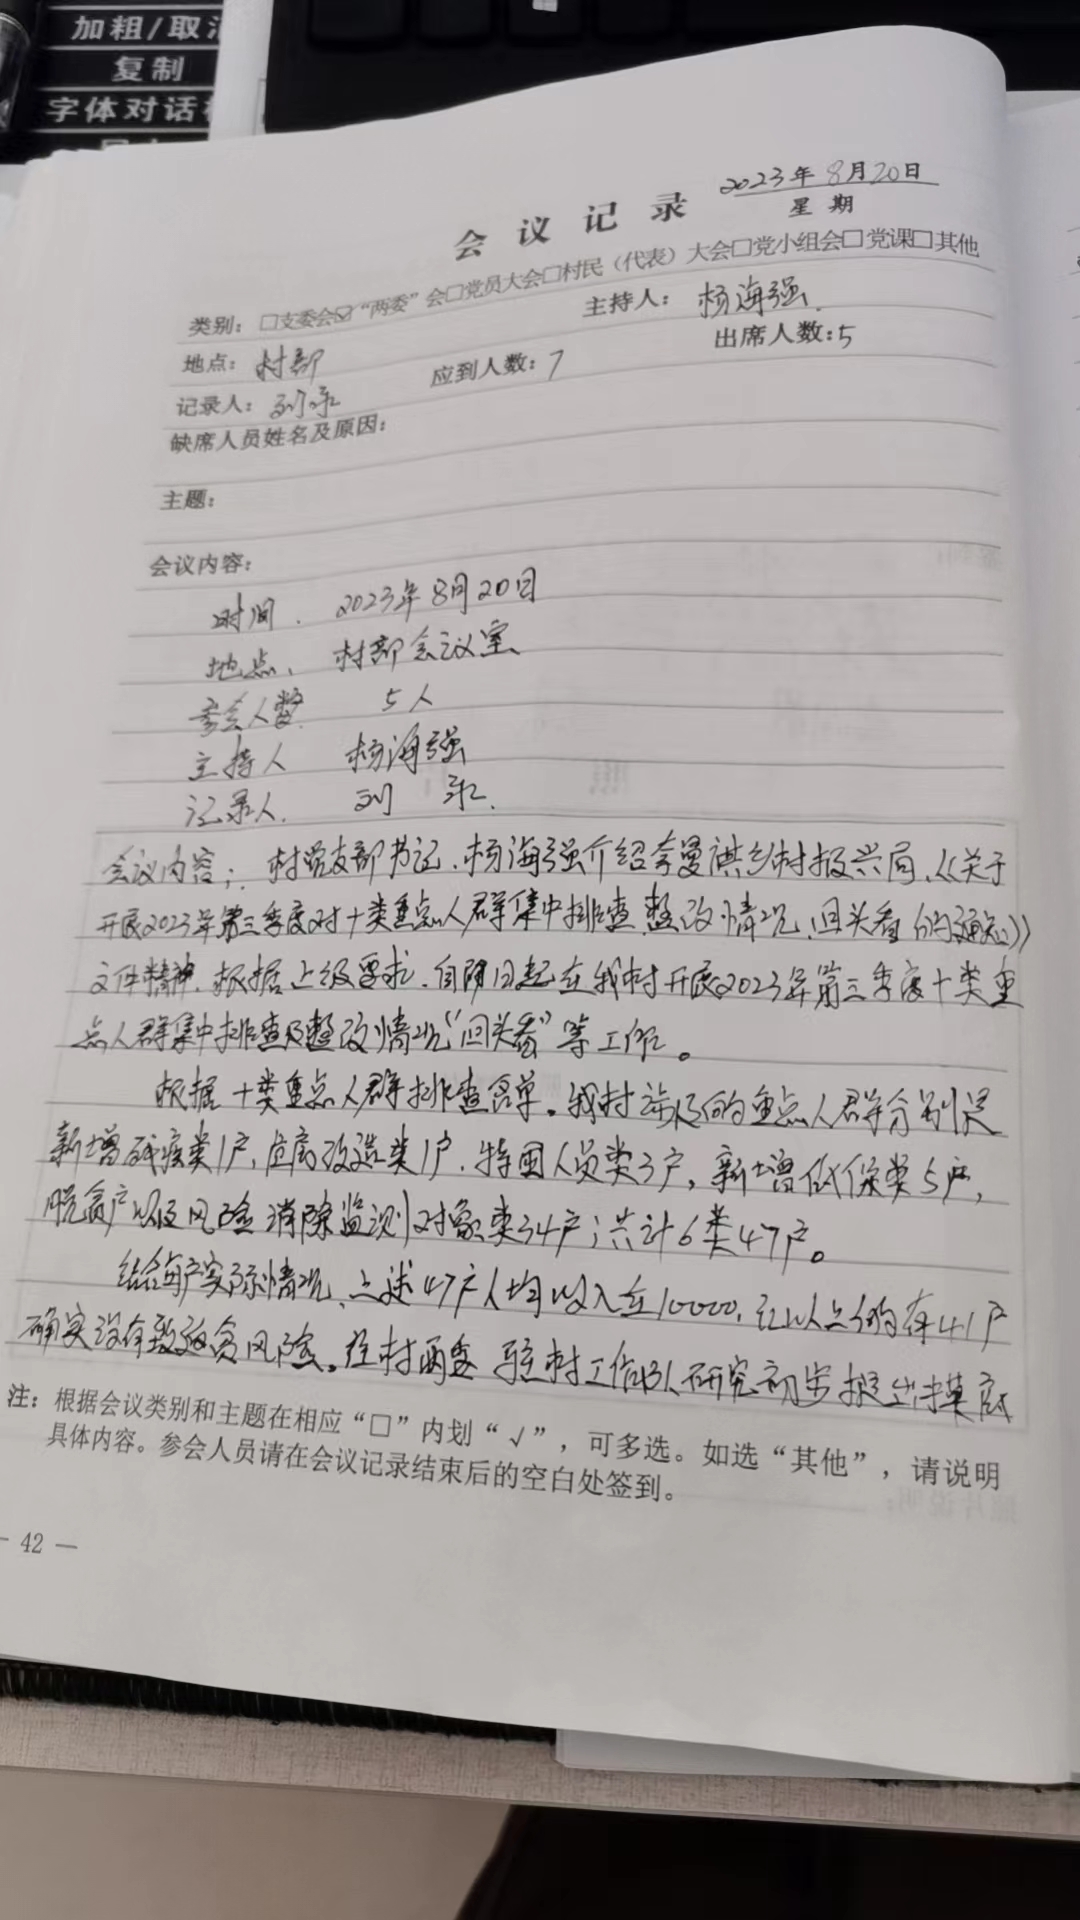 加粗/取消
复制
字体对话
2023年8月20日
会议记录
星期
类别：□支委会☑“两委”会□党员大会□村民（代表）大会□党小组会□党课□其他
主持人：杨海强
地点：村部
应到人数：7
出席人数：5
记录人：刘
缺席人员姓名及原因：
主题：
会议内容：
时间. 2023年8月20日
地点、村部会议室
参会人数 5人
主持人 杨海强
记录人. 刘
会议内容：村党支部书记、杨海强介绍 乡村振兴局、《关于
开展2023年第三季度对十类重点人群集中排查、整改情况、回头看的通知》
文件精神、根据上级要求、自即日起在我村开展2023年第三季度十类重
点人群集中排查及整改情况“回头看”等工作。
根据十类重点人群排查名单。我村涉及的重点人群分别是
新增残疾类1户、危房改造类1户、特困人员类3户，新增低保类5户，
脱贫户以及风险消除监测对象类34户；共计6类47户。
结合每户实际情况、上述47户人均收入在10000元以上的有41户
确实没有致返贫风险。经村两委 驻村工作队研究初步拟出摸底
注：根据会议类别和主题在相应“□”内划“√”，可多选。如选“其他”，请说明
具体内容。参会人员请在会议记录结束后的空白处签到。
— 42 —